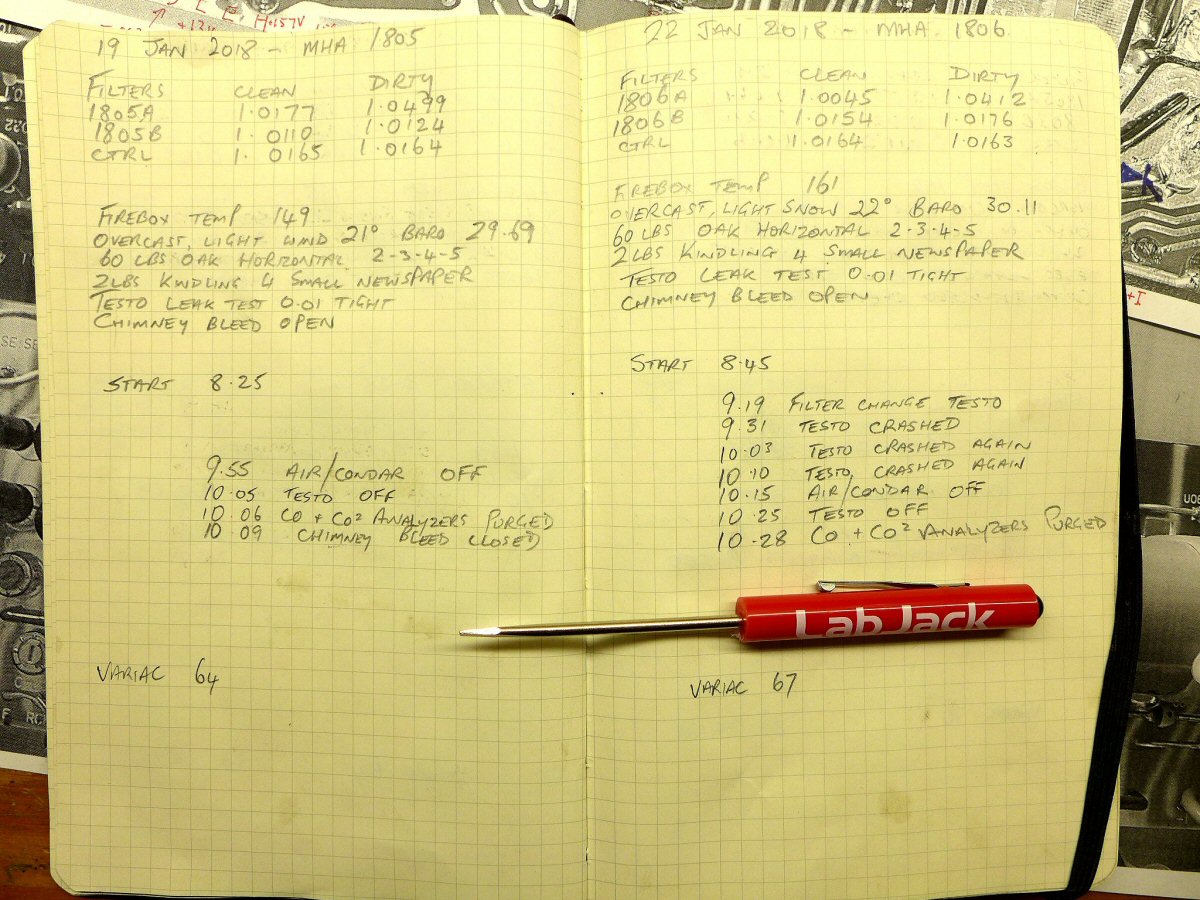 19 JAN 2018 - MHA 1805
FILTERS CLEAN DIRTY
1805A 1.0177 1.0499
1805B 1.0110 1.0124
CTRL 1.0165 1.0164
FIREBOX TEMP 149
OVERCAST, LIGHT WIND 21° BARO 29.69
60 LBS OAK HORIZONTAL 2-3-4-5
2LBS KINDLING 4 SMALL NEWSPAPER
TESTO LEAK TEST 0.01 TIGHT
CHIMNEY BLEED OPEN
START 8.25
9.55 AIR/CONDAR OFF
10.05 TESTO OFF
10.06 CO + CO² ANALYZERS PURGED
10.09 CHIMNEY BLEED CLOSED
VARIAC 64
22 JAN 2018 - MHA 1806
FILTERS CLEAN DIRTY
1806A 1.0045 1.0412
1806B 1.0154 1.0176
CTRL 1.0164 1.0163
FIREBOX TEMP 161
OVERCAST, LIGHT SNOW 22° BARO 30.11
60 LBS OAK HORIZONTAL 2-3-4-5
2LBS KINDLING 4 SMALL NEWSPAPER
TESTO LEAK TEST 0.01 TIGHT
CHIMNEY BLEED OPEN
START 8.45
9.19 FILTER CHANGE TESTO
9.31 TESTO CRASHED
10.03 TESTO CRASHED AGAIN
10.10 TESTO CRASHED AGAIN
10.15 AIR/CONDAR OFF
10.25 TESTO OFF
10.28 CO + CO² ANALYZERS PURGED
LabJack
VARIAC 67